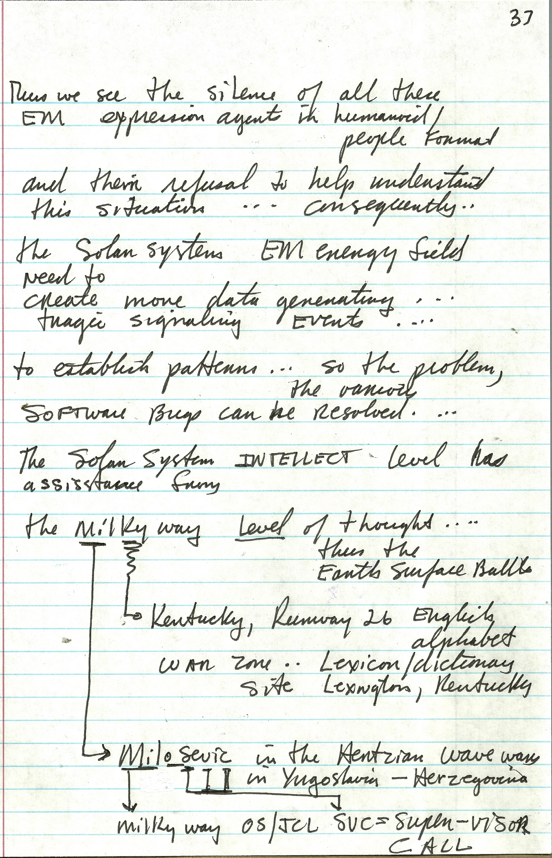 37
Thus we see the silence of all these
EM expression agents in humanoid/
people format
and their refusal to help understand
this situation ... consequently..
the Solar Systems EM energy field
need to
create more data generating ....
tragic signaling EVENTS ....
to establish patterns ... so the problem,
the various
SOFTWARE Bugs can be Resolved. ...
The Solar System INTELLECT level has
assisstance from
the Milky way Level of thought ....
thus the
Earth Surface Battle
Kentucky, Runway 26 English
alphabet
WAR Zone .. Lexicon/dictionary
Site Lexington, Kentucky
Milosevic in the Hertzian wave wars
in Yugoslavia - Herzegovina
milky way OS/JCL SVC = Super-visor
CALL